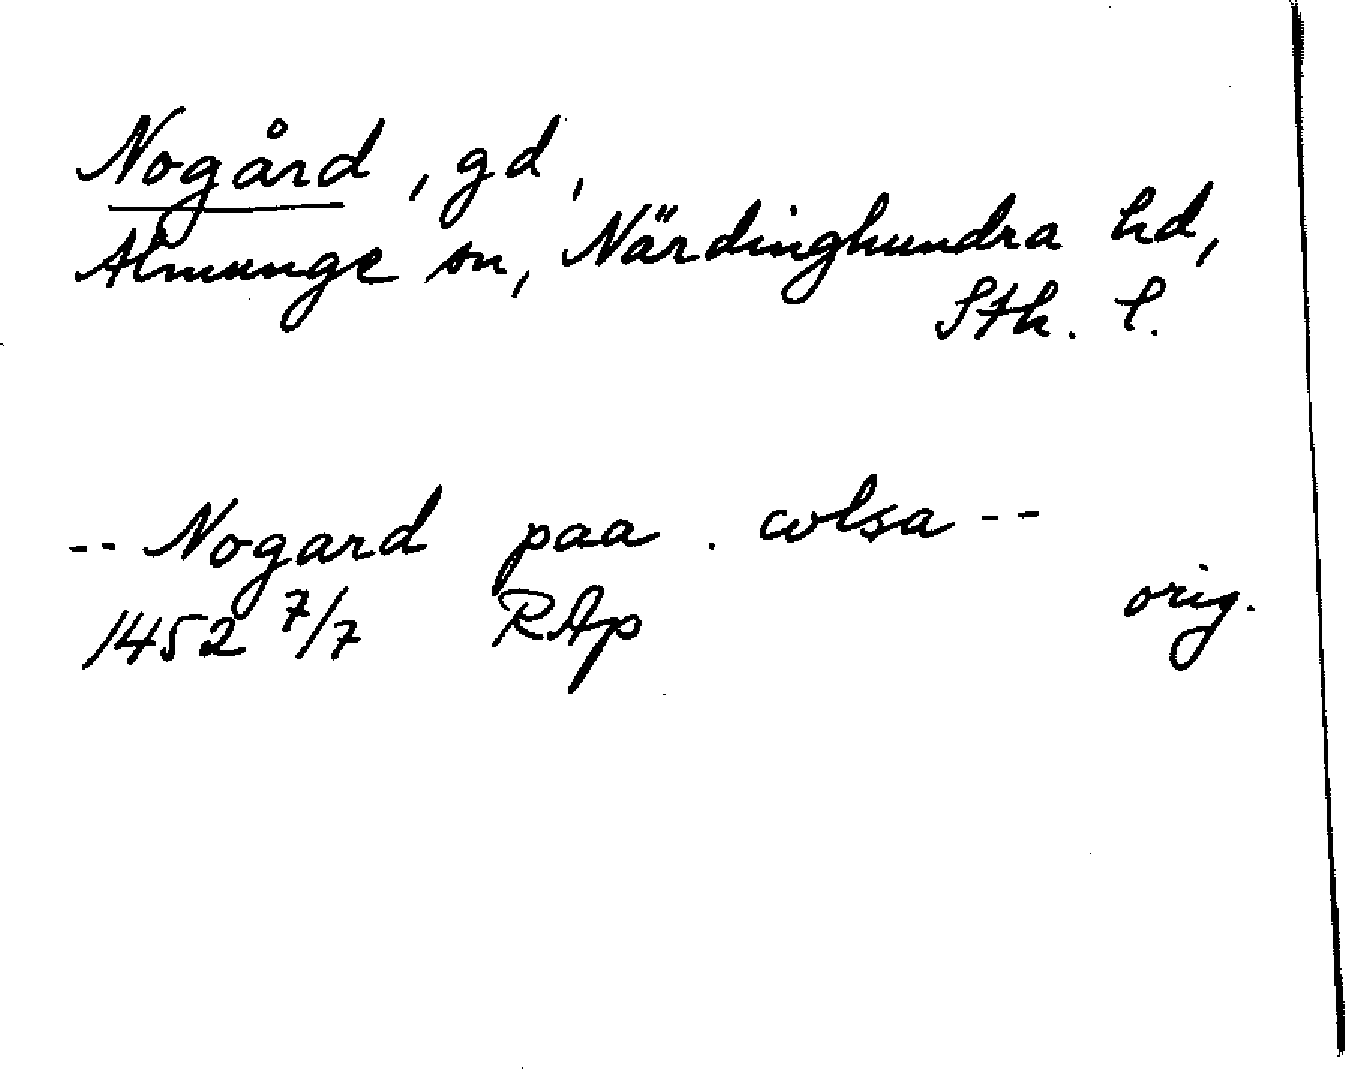 Nogård, gd,
Almunge sn, Närdinghundra hd,
Sth. l.
-- Nogard paa . colsa --
1452 7/7 RAp orig.